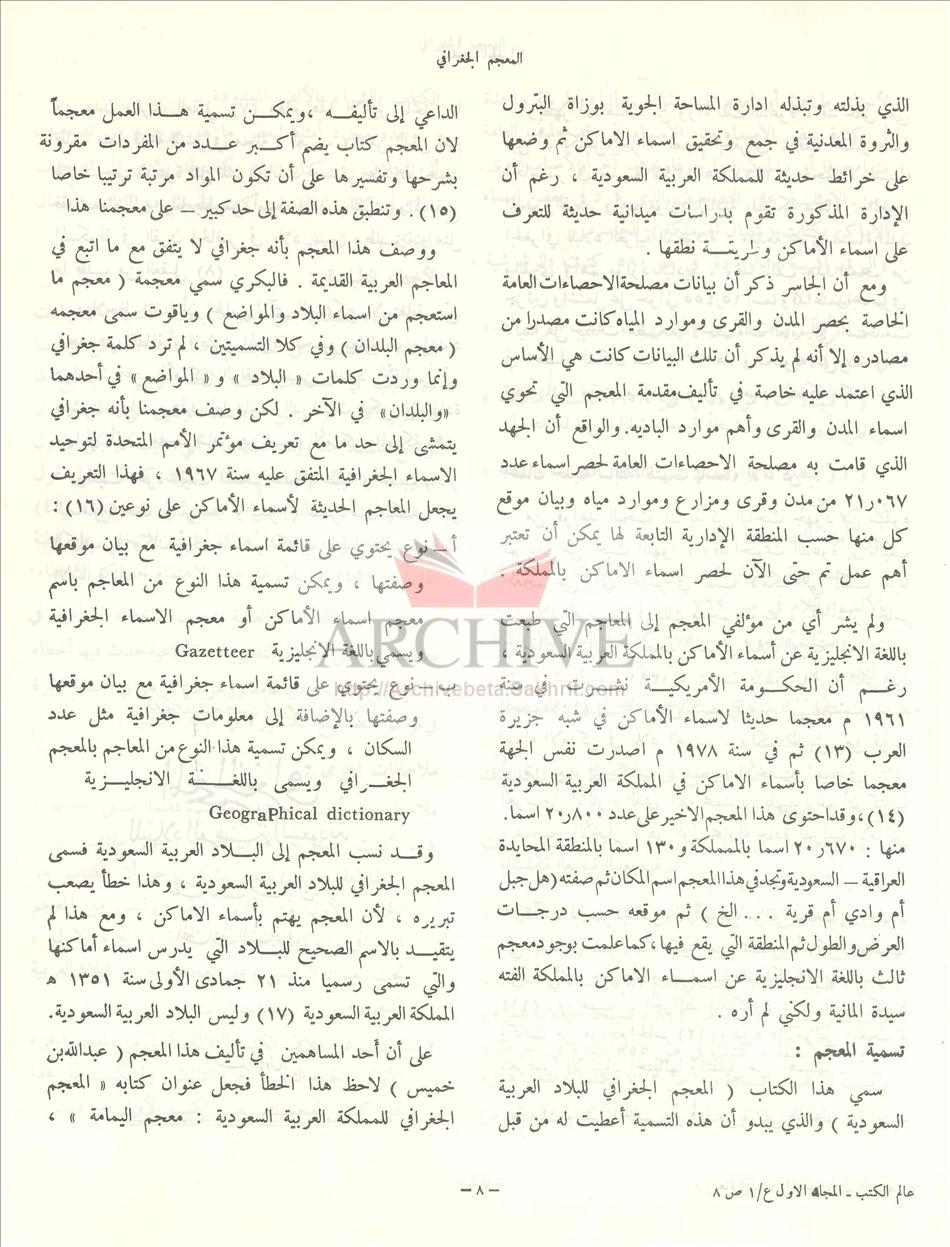 المعجم الجغرافي
الذي بذلته وتبذله ادارة المساحة الجوية بوزاة البترول
والثروة المعدنية في جمع وتحقيق اسماء الاماكن ثم وضعها
على خرائط حديثة للمملكة العربية السعودية ، رغم أن
الإدارة المذكورة تقوم بدراسات ميدانية حديثة للتعرف
على اسماء الأماكن وطريقة نطقها .
ومع أن الجاسر ذكر أن بيانات مصلحة الاحصاءات العامة
الخاصة بحصر المدن والقرى وموارد المياه كانت مصدرا من
مصادره إلا أنه لم يذكر أن تلك البيانات كانت هي الأساس
الذي اعتمد عليه خاصة في تأليف مقدمة المعجم التي تحوي
اسماء المدن والقرى وأهم موارد الباديه. والواقع أن الجهد
الذي قامت به مصلحة الاحصاءات العامة لحصر اسماء عدد
٢١٫٠٦٧ من مدن وقرى ومزارع وموارد مياه وبيان موقع
كل منها حسب المنطقة الإدارية التابعة لها يمكن أن تعتبر
أهم عمل تم حتى الآن لحصر اسماء الاماكن بالمملكة .
ولم يشر أي من مؤلفي المعجم إلى المعاجم التي طبعت
باللغة الانجليزية عن أسماء الأماكن بالمملكة العربية السعودية ،
رغم أن الحكومة الأمريكية نشرت في سنة
١٩٦١ م معجما حديثا لاسماء الأماكن في شبه جزيرة
العرب (١٣) ثم في سنة ١٩٧٨ م اصدرت نفس الجهة
معجما خاصا بأسماء الاماكن في المملكة العربية السعودية
(١٤)، وقد احتوى هذا المعجم الاخير على عدد ٢٠٫٨٠٠ اسما.
منها : ٢٠٫٦٧٠ اسما بالمملكة و ١٣٠ اسما بالمنطقة المحايدة
العراقية – السعودية وتجد في هذا المعجم اسم المكان ثم صفته (هل جبل
أم وادي أم قرية ... الخ ) ثم موقعه حسب درجات
العرض والطول ثم المنطقة التي يقع فيها ، كما علمت بوجود معجم
ثالث باللغة الانجليزية عن اسماء الاماكن بالمملكة الفته
سيدة المانية ولكني لم أره .
تسمية المعجم :
سمي هذا الكتاب ( المعجم الجغرافي للبلاد العربية
السعودية ) والذي يبدو أن هذه التسمية أعطيت له من قبل
الداعي إلى تأليفه ، ويمكن تسمية هذا العمل معجماً
لان المعجم كتاب يضم أكبر عدد من المفردات مقرونة
بشرحها وتفسيرها على أن تكون المواد مرتبة ترتيبا خاصا
(١٥) . وتنطبق هذه الصفة إلى حد كبير – على معجمنا هذا
ووصف هذا المعجم بأنه جغرافي لا يتفق مع ما اتبع في
المعاجم العربية القديمة . فالبكري سمي معجمة ( معجم ما
استعجم من اسماء البلاد والمواضع ) وياقوت سمى معجمه
( معجم البلدان ) وفي كلا التسميتين ، لم ترد كلمة جغرافي
وإنما وردت كلمات « البلاد » و « المواضع » في أحدهما
«والبلدان» في الآخر . لكن وصف معجمنا بأنه جغرافي
يتمشى إلى حد ما مع تعريف مؤتمر الأمم المتحدة لتوحيد
الاسماء الجغرافية المتفق عليه سنة ١٩٦٧ ، فهذا التعريف
يجعل المعاجم الحديثة لأسماء الأماكن على نوعين (١٦) :
أ – نوع يحتوي على قائمة اسماء جغرافية مع بيان موقعها
وصفتها ، ويمكن تسمية هذا النوع من المعاجم باسم
معجم اسماء الأماكن أو معجم الاسماء الجغرافية
ويسمي باللغة الانجليزية Gazetteer
ب – نوع يحتوي على قائمة اسماء جغرافية مع بيان موقعها
وصفتها بالإضافة إلى معلومات جغرافية مثل عدد
السكان ، ويمكن تسمية هذا النوع من المعاجم بالمعجم
الجغرافي ويسمى باللغة الانجليزية
GeograPhical dictionary
وقد نسب المعجم إلى البلاد العربية السعودية فسمى
المعجم الجغرافي للبلاد العربية السعودية ، وهذا خطأ يصعب
تبريره ، لأن المعجم يهتم بأسماء الاماكن ، ومع هذا لم
يتقيد بالاسم الصحيح للبلاد التي يدرس اسماء أماكنها
والتي تسمى رسميا منذ ٢١ جمادى الأولى سنة ١٣٥١ ه
المملكة العربية السعودية (١٧) وليس البلاد العربية السعودية.
على أن أحد المساهمين في تأليف هذا المعجم ( عبدالله بن
خميس ) لاحظ هذا الخطأ فجعل عنوان كتابه « المعجم
الجغرافي للمملكة العربية السعودية : معجم اليمامة » ،
ARCHIVE
http://Archivebeta.Sakhrit.com
– ٨ –
عالم الكتب - المجلد الاول ع/١ ص ٨